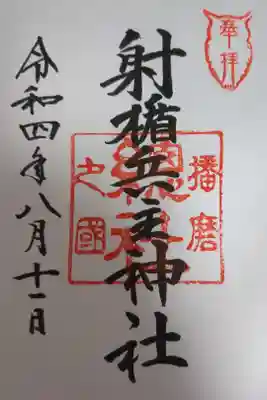 奉拝
射楯兵主神社
播磨
總社
之國
令和四年八月十一日